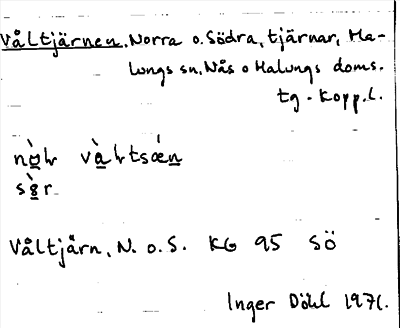 Våltjärnen, Norra o. Södra, tjärnar, Ma-
lungs sn, Nås o Malungs doms.
tg. Kopp.l.
Våltjärn, N. o. S. KG 95 SÖ
Inger Döhl 1971.